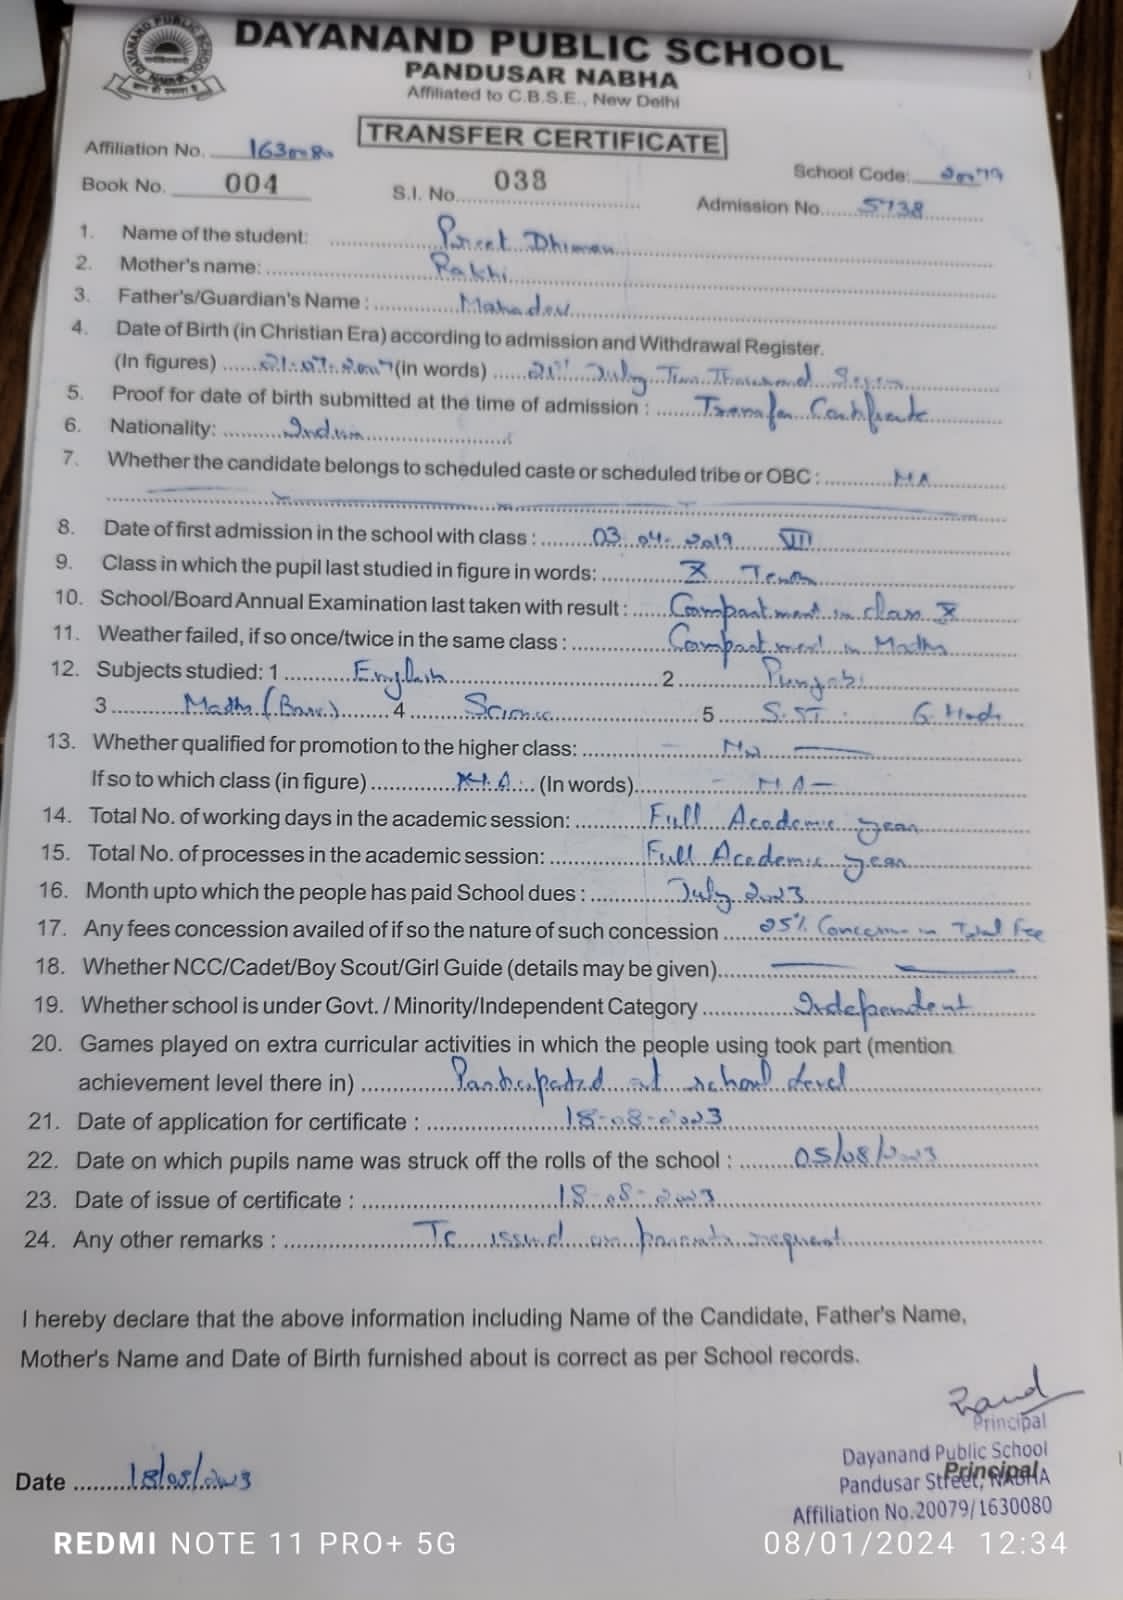 DAYANAND PUBLIC SCHOOL
PANDUSAR NABHA
Affiliated to C.B.S.E., New Delhi
TRANSFER CERTIFICATE
Affiliation No. 1630080
School Code: 20079
Book No. 004 S.I. No. 038 Admission No. 5738
1. Name of the student: Preet Dhiman
2. Mother's name: Rakhi
3. Father's/Guardian's Name : Mahadev
4. Date of Birth (in Christian Era) according to admission and Withdrawal Register.
(In figures) 21.07.2007 (in words) 21st July Two Thousand Seven
5. Proof for date of birth submitted at the time of admission : Transfer Certificate
6. Nationality: Indian
7. Whether the candidate belongs to scheduled caste or scheduled tribe or OBC : NA
8. Date of first admission in the school with class : 03.04.2019 VII
9. Class in which the pupil last studied in figure in words: X Tenth
10. School/Board Annual Examination last taken with result : Compartment in class X
11. Weather failed, if so once/twice in the same class : Compartment in Maths
12. Subjects studied: 1 English 2 Punjabi
3 Maths (Basic) 4 Science 5 S.ST. 6. Hindi
13. Whether qualified for promotion to the higher class: No
If so to which class (in figure) N.A. (In words) - N.A -
14. Total No. of working days in the academic session: Full Academic year
15. Total No. of processes in the academic session: Full Academic year
16. Month upto which the people has paid School dues : July 2023
17. Any fees concession availed of if so the nature of such concession 25% Concession in Total Fee
18. Whether NCC/Cadet/Boy Scout/Girl Guide (details may be given)
19. Whether school is under Govt. / Minority/Independent Category Independent
20. Games played on extra curricular activities in which the people using took part (mention
achievement level there in) Participated at school level
21. Date of application for certificate : 18-08-2023
22. Date on which pupils name was struck off the rolls of the school : 05/08/2023
23. Date of issue of certificate : 18-08-2023
24. Any other remarks : Tc issued on parents request
I hereby declare that the above information including Name of the Candidate, Father's Name,
Mother's Name and Date of Birth furnished about is correct as per School records.
Principal
Dayanand Public School
Date 18/08/2023
Principal
Pandusar Street, NABHA
Affiliation No.20079/1630080
REDMI NOTE 11 PRO+ 5G
08/01/2024 12:34